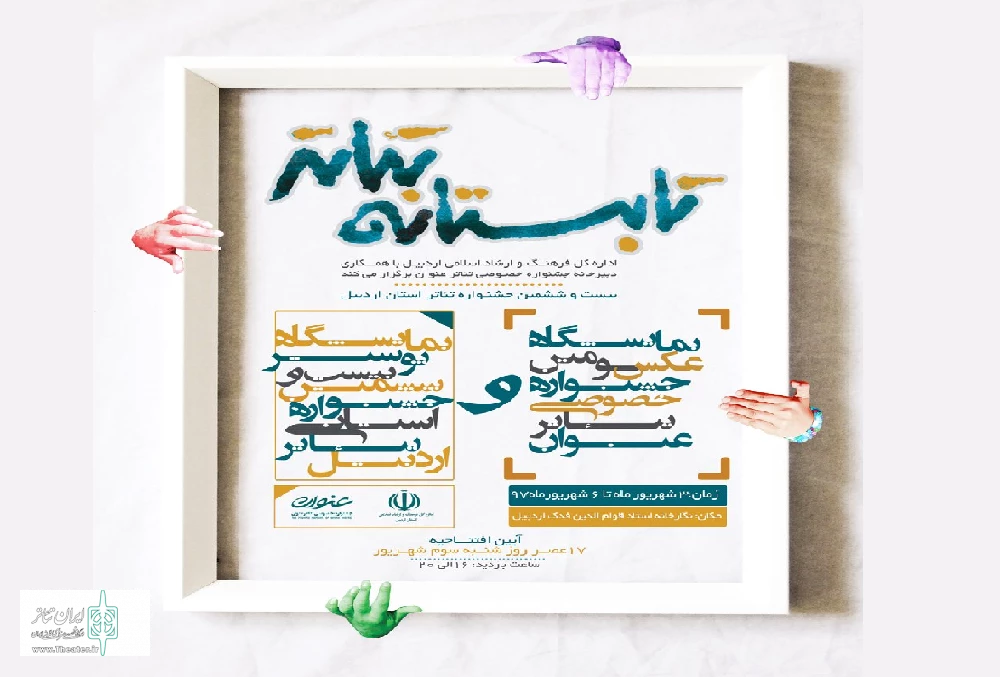 تابستانه تئاتر
اداره کل فرهنگ و ارشاد اسلامی اردبیل با همکاری
دبیرخانه جشنواره خصوصی تئاتر عنوان برگزار می کند
بیست و ششمین جشنواره تئاتر استان اردبیل
نمایشگاه
عکس سومین
جشنواره
خصوصی
تئاتر
عنوان
و
نمایشگاه
پوستر
بیست و
ششمین
جشنواره
استانی
تئاتر
اردبیل
زمان: ۳ شهریور ماه تا ۶ شهریورماه ۹۷
مکان: نگارخانه استاد قوام الدین فدک اردبیل
عنوان
آیین افتتاحیه
۱۷ عصر روز شنبه سوم شهریور
ساعت بازدید: ۱۶ الی ۲۰
ایران تئاتر
www.Theater.ir